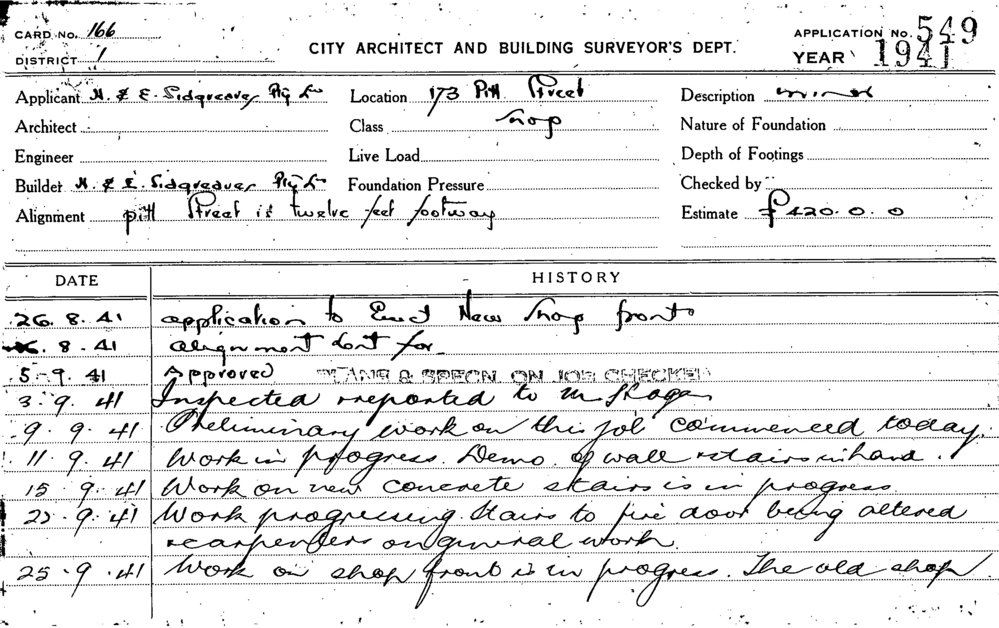 CARD No. 166
DISTRICT 1
CITY ARCHITECT AND BUILDING SURVEYOR'S DEPT.
APPLICATION No. 549
YEAR 1941
Applicant H. & E. Sidgreaves Pty Ld
Location 173 Pitt Street
Description minor
Architect
Class Shop
Nature of Foundation
Engineer
Live Load
Depth of Footings
Builder H. & E. Sidgreaves Pty Ld
Foundation Pressure
Checked by
Alignment Pitt Street is twelve feet footway
Estimate £420.0.0
DATE HISTORY
26.8.41 application to Erect New Shop fronts
8.41 alignment for
5-9.41 Approved PLANS & SPECN. ON JOB CHECKED
3.9.41 Inspected & reported to Mr
9.9.41 Preliminary work on this job commenced today.
11.9.41 Work in progress. Demo. of wall & stairs in hand.
15.9.41 Work on new concrete stairs is in progress
9.41 Work progressing. Stairs to fire door being altered
& carpenters on general work.
25.9.41 Work on shop front is in progress. The old shop